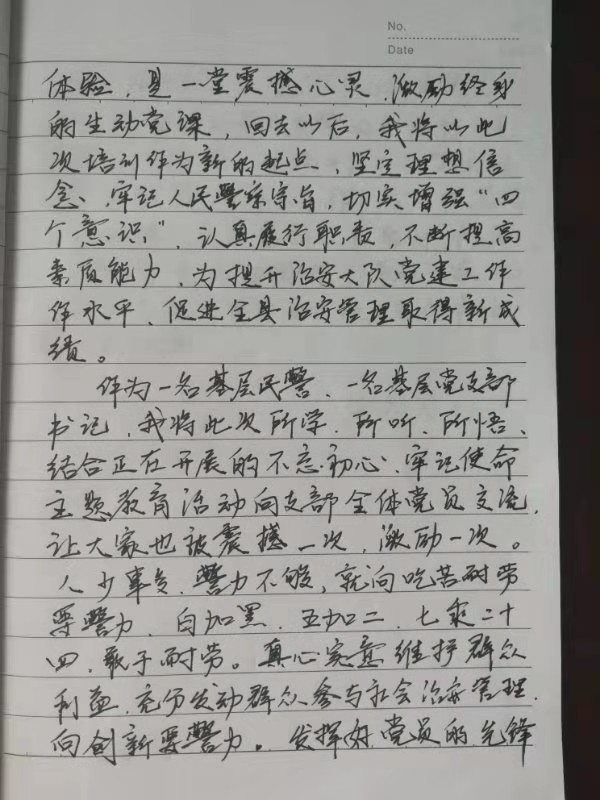 No.
Date
体验，是一堂震撼心灵、激励终身
的生动党课，回去以后，我将以此
次培训作为新的起点，坚定理想信
念、牢记人民警察宗旨，切实增强“四
个意识”，认真履行职责，不断提高
素质能力，为提升治安大队党建工作
作水平、促进全县治安管理取得新成
绩。
作为一名基层民警、一名基层党支部
书记，我将此次所学、所听、所悟、
结合正在开展的不忘初心、牢记使命
主题教育活动向支部全体党员交流，
让大家也被震撼一次，激励一次。
人少事多，警力不够，就向吃苦耐劳
要警力，白加黑、五加二、七乘二十
四、敢于耐劳。真心实意维护群众
利益，充分发动群众参与社会治安管理，
向创新要警力。发挥好党员的先锋